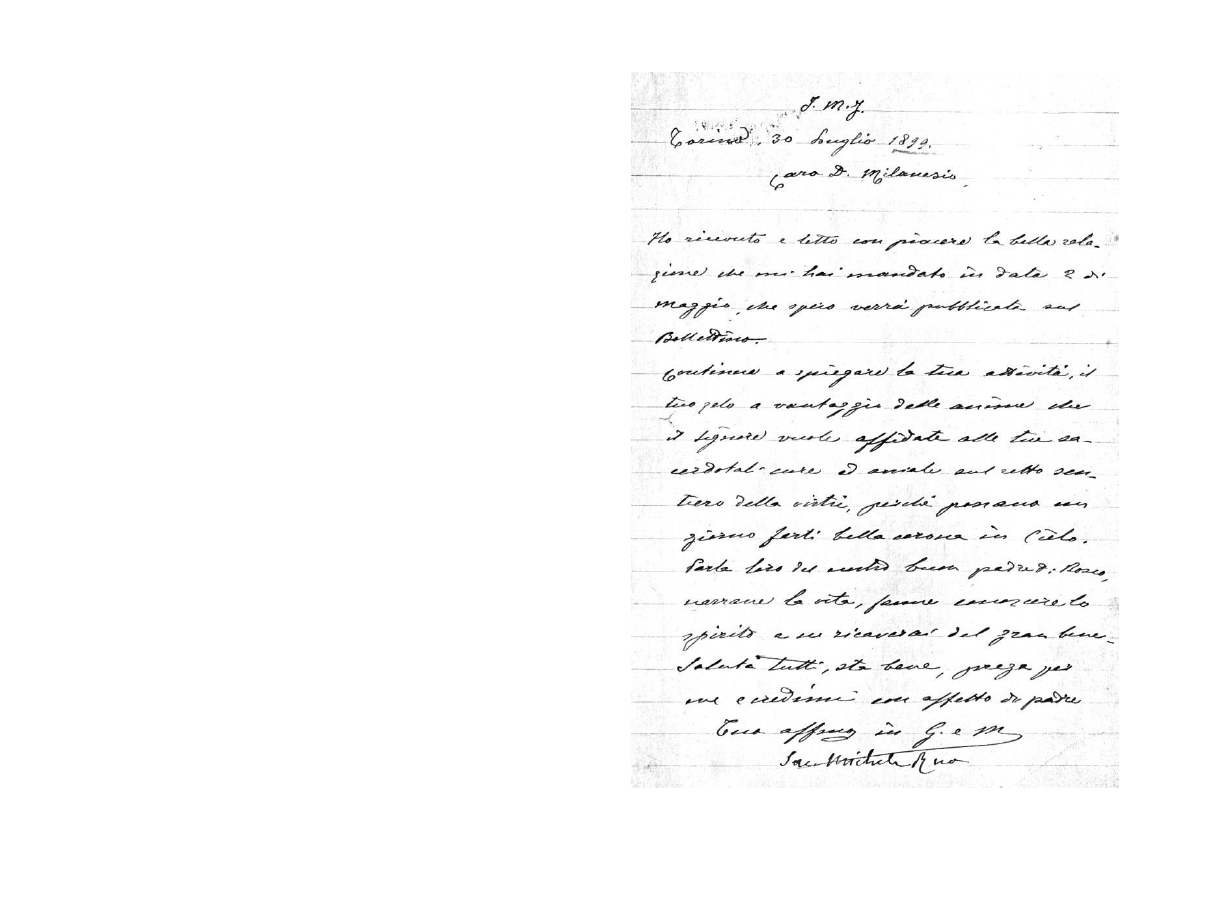 J. M. J.
Torino, 30 Luglio 1899.
Caro D. Milanesio
Ho ricevuto e letto con piacere la bella rela-
zione che mi hai mandato in data 2 di
Maggio, che spero verrà pubblicata sul
Bollettino.
Continua a spiegare la tua attività, il
tuo zelo a vantaggio delle anime che
il Signore vuole affidate alle tue sa-
cerdotali cure ed avviale sul retto sen-
tiero della virtù, perché possano un
giorno farti bella corona in Cielo.
Parla loro del nostro buon padre D. Bosco,
narrane la vita, fanne conoscere lo
spirito e ne ricaverai del gran bene.
Saluta tutti, sta bene, prega per
me e credimi con affetto di padre
Tuo affmo in G. e M
Sac. Michele Rua